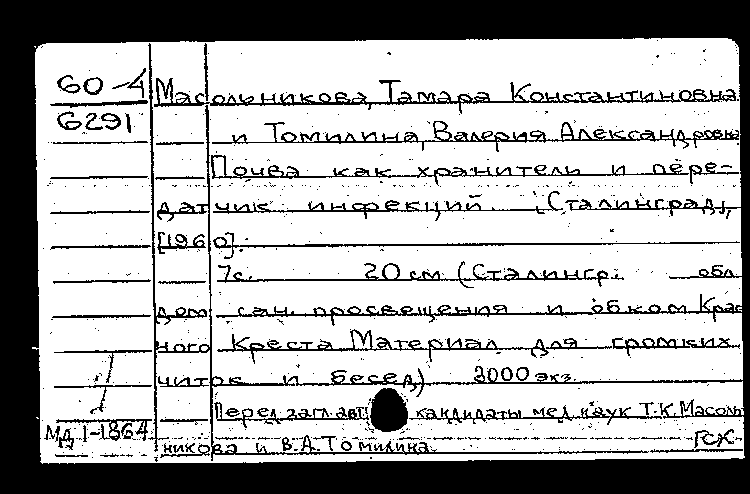 60-4 Масольникова, Тамара Константиновна
6291 и Томилина, Валерия Александровна
Почва как хранитель и пере-
датчик инфекций. [Сталинград],
[1960].
7с. 20 см (Сталингр. обл.
дом сан. просвещения и обком Крас
ного Креста Материал для громких
читок и бесед) 3000 экз.
Перед загл. авт. кандидаты мед. наук Т.К. Масоль
МД 1-1864 никова и В.А. Томилина.
ГСК